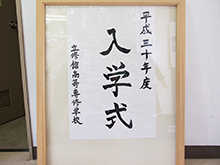 平成三十年度
入学式
立修館高等専修学校